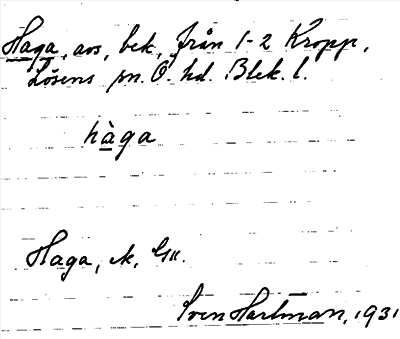 Haga, avs, bek, från 1-2 Kropp,
Lösens sn. Ö. hd. Blek. l.
hàga
Haga, ek,
Sven Hartman, 1931